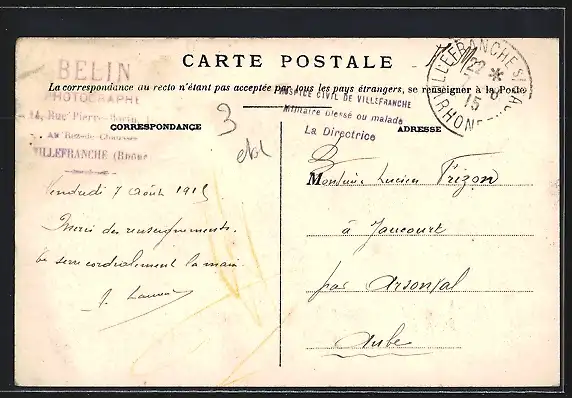 CARTE POSTALE
La correspondance au recto n'étant pas acceptée par tous les pays étrangers, se renseigner à la Poste
BELIN
PHOTOGRAPHE
Rue Pierre-Morin
Au Rez-de-Chaussée
VILLEFRANCHE (Rhône
HOSPICE CIVIL DE VILLEFRANCHE
Militaire blessé ou malade
La Directrice
VILLEFRANCHE S/ SAÔNE
22 *
8
15
RHÔNE
CORRESPONDANCE
3
ADRESSE
Vendredi 7 août 1915
Merci des renseignements.
te serre cordialement la main.
Monsieur Lucien Frizon
à Jaucourt
par Arsonval
Aube